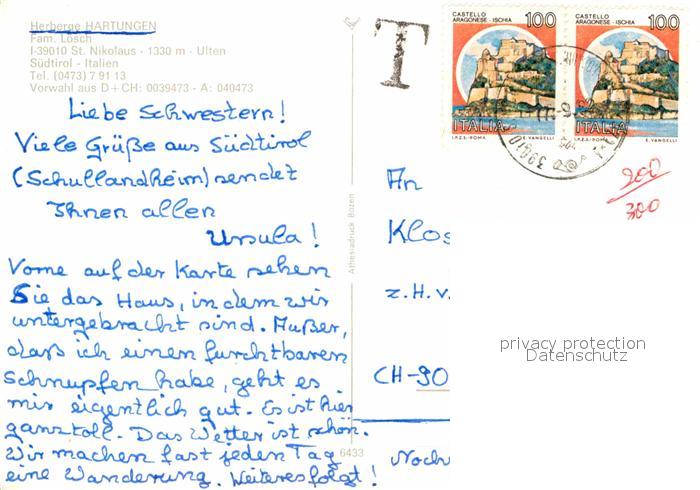 Herberge HARTUNGEN
Fam. Lösch
I-39010 St. Nikolaus - 1330 m - Ulten
Südtirol - Italien
Tel. (0473) 7 91 13
Vorwahl aus D + CH: 0039473 - A: 040473
Liebe Schwestern!
Viele Grüße aus Südtirol
(Schullandheim) sendet
Ihnen allen
Ursula!
Vorne auf der Karte sehen
Sie das Haus, in dem wir
untergebracht sind. Außer,
daß ich einen furchtbaren
Schnupfen habe, geht es
mir eigentlich gut. Es ist hier
ganz toll. Das Wetter ist schön.
Wir machen fast jeden Tag
eine Wanderung. Weiteres folgt!
Athesiadruck Bozen
6433
T
CASTELLO
ARAGONESE - ISCHIA
100
ITALIA
I.P.Z.S. - ROMA
E. VANGELLI
CASTELLO
ARAGONESE - ISCHIA
100
ITALIA
I.P.Z.S. - ROMA
E. VANGELLI
39010
200
300
An
Klos
z.H.v.
CH-90
Noch
privacy protection
Datenschutz